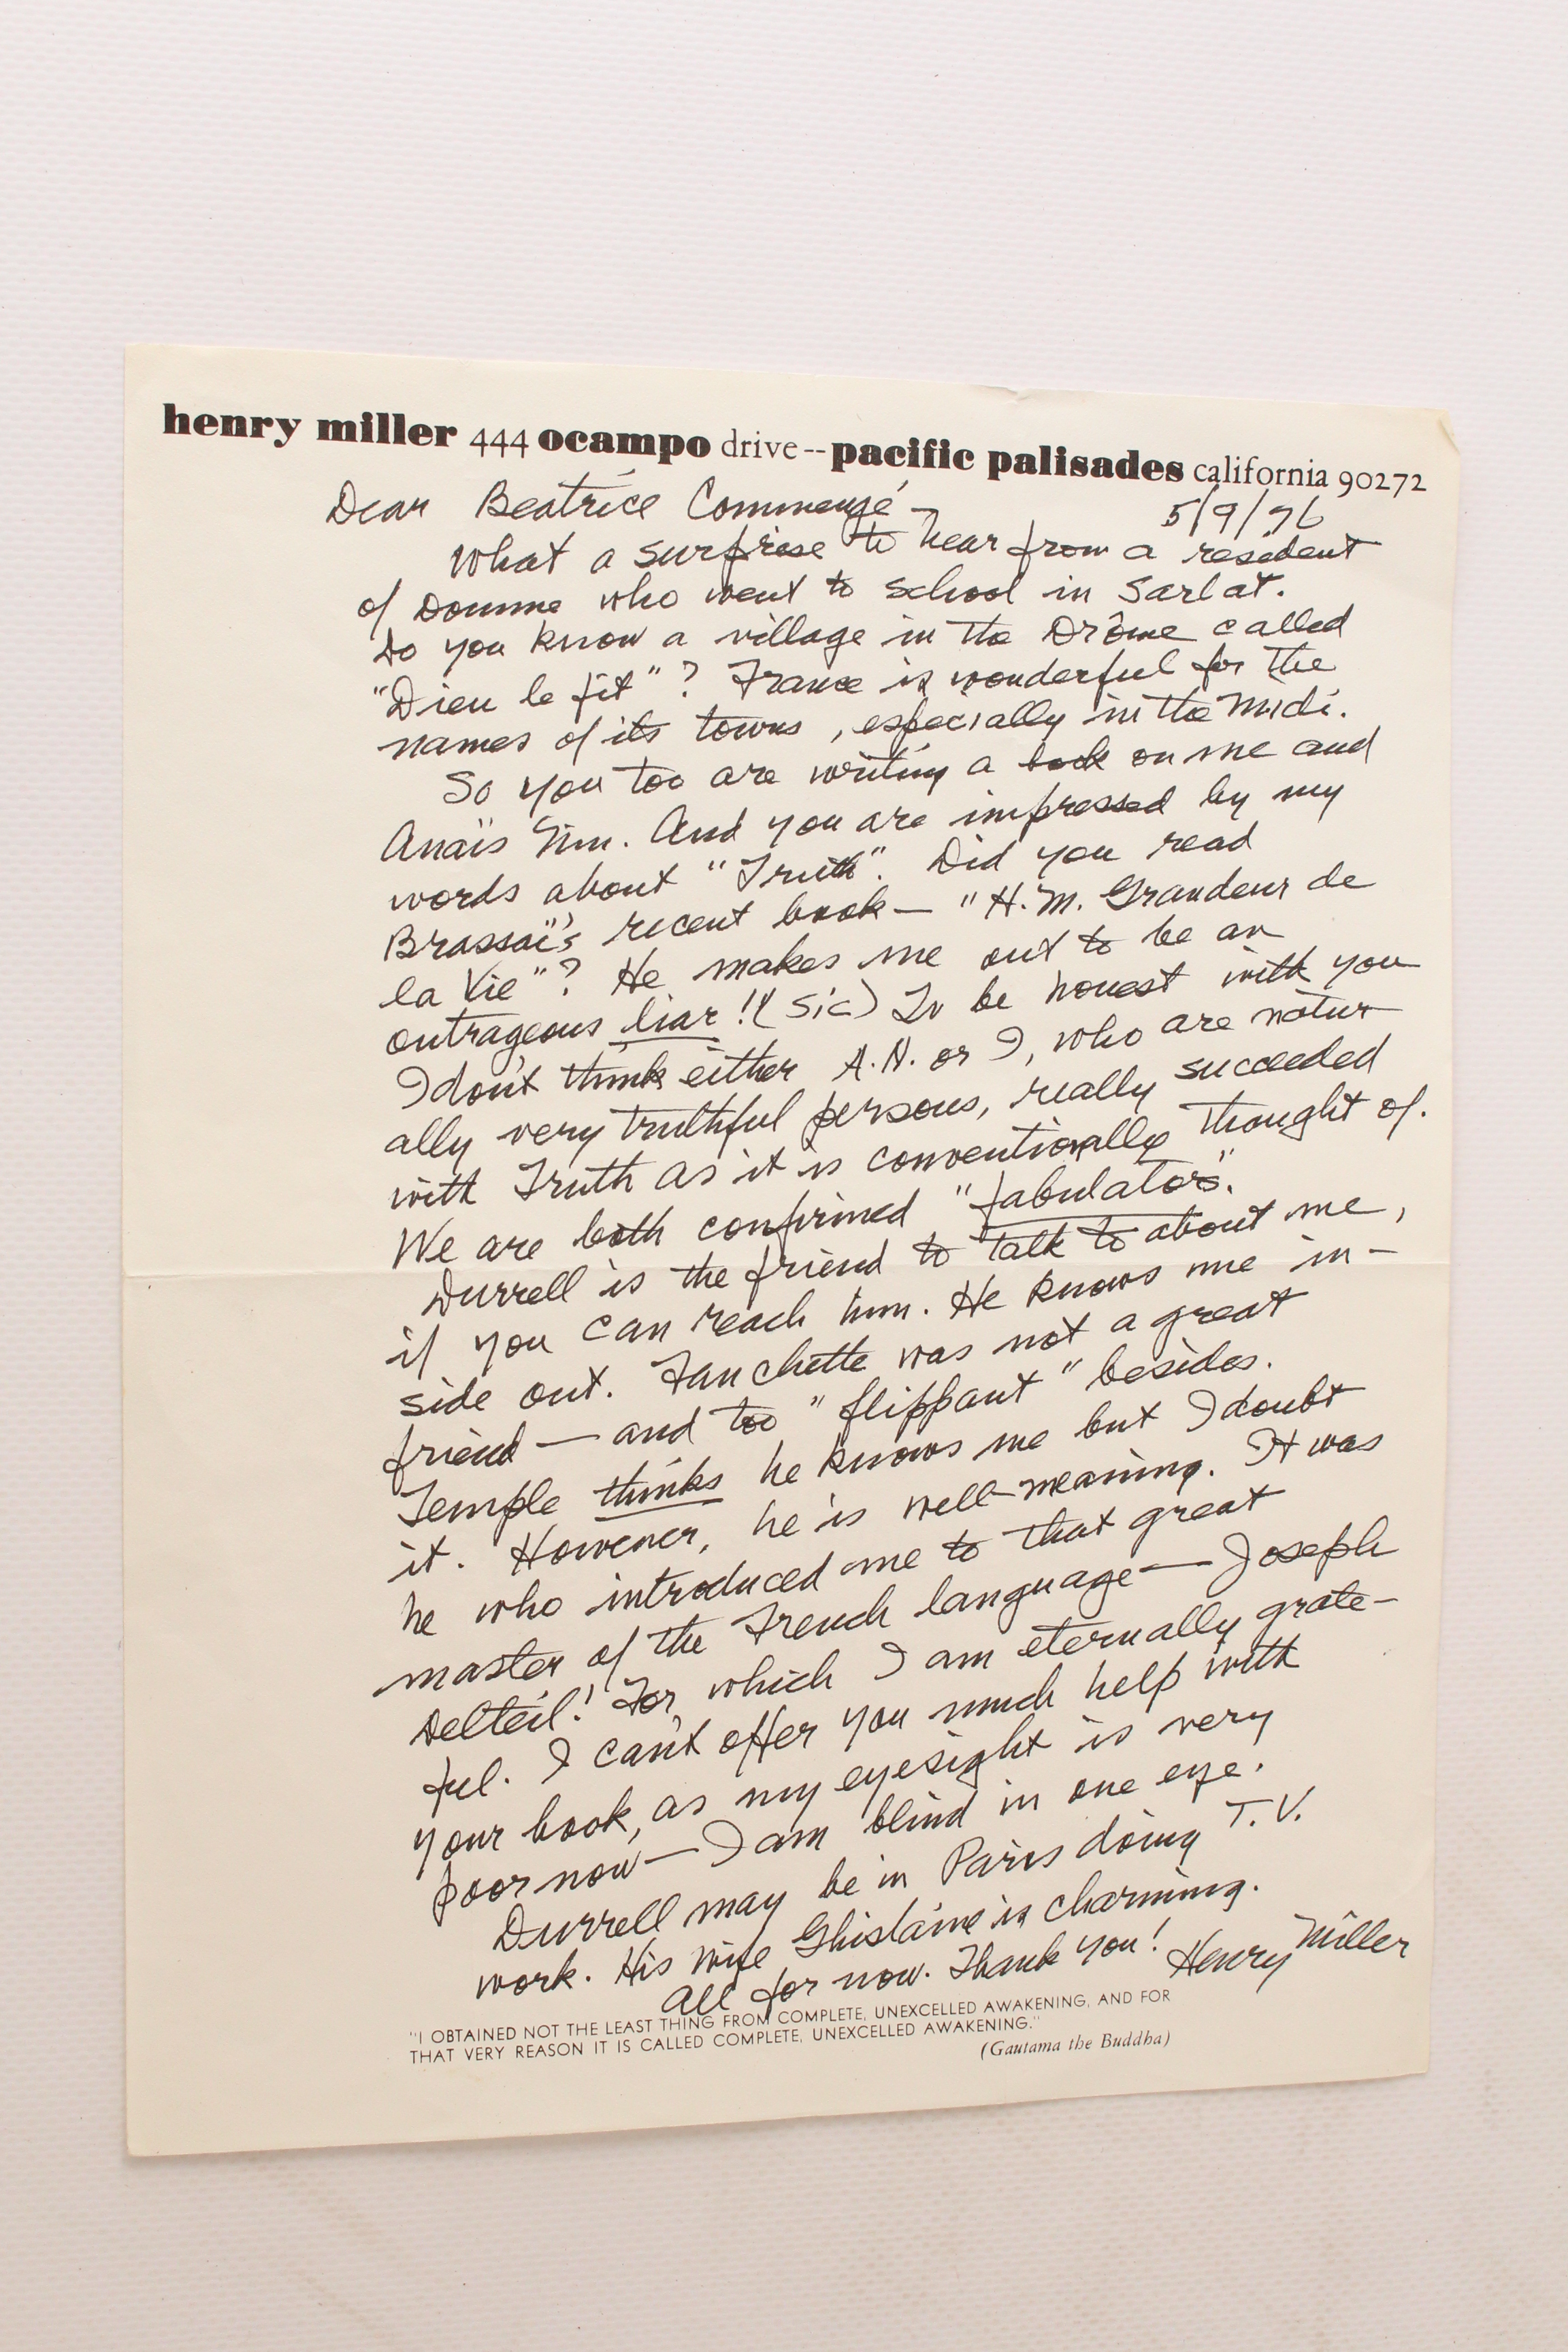 henry miller 444 ocampo drive--pacific palisades california 90272
Dear Beatrice Commengé — 5/9/76
What a surprise to hear from a resident
of Domme who went to school in Sarlat.
Do you know a village in the Drôme called
"Dieu le fit"? France is wonderful for the
names of its towns, especially in the Midi.
So you too are writing a book on me and
Anaïs Nin. And you are impressed by my
words about "Truth". Did you read
Brassaï's recent book — "H.M. Grandeur de
la Vie"? He makes me out to be an
outrageous liar!! (sic) To be honest with you
I don't think either A.N. or I, who are natur
ally very truthful persons, really succeeded
with Truth as it is conventionally thought of.
We are both confirmed "fabulators".
Durrell is the friend to talk to about me,
if you can reach him. He knows me in-
side out. Fanchette was not a great
friend — and too "flippant" besides.
Temple thinks he knows me but I doubt
it. However, he is well-meaning. It was
he who introduced me to that great
master of the French language — Joseph
Delteil! For which I am eternally grate-
ful. I can't offer you much help with
your book, as my eyesight is very
poor now — I am blind in one eye.
Durrell may be in Paris doing T.V.
work. His wife Ghislaine is charming.
All for now. Thank you! Henry Miller
"I OBTAINED NOT THE LEAST THING FROM COMPLETE, UNEXCELLED AWAKENING, AND FOR
THAT VERY REASON IT IS CALLED COMPLETE, UNEXCELLED AWAKENING."
(Gautama the Buddha)